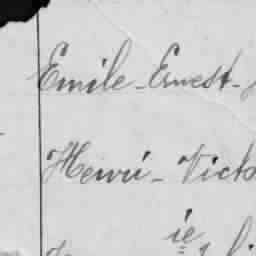 Emile-Ernest-
Henri-Victo
ie